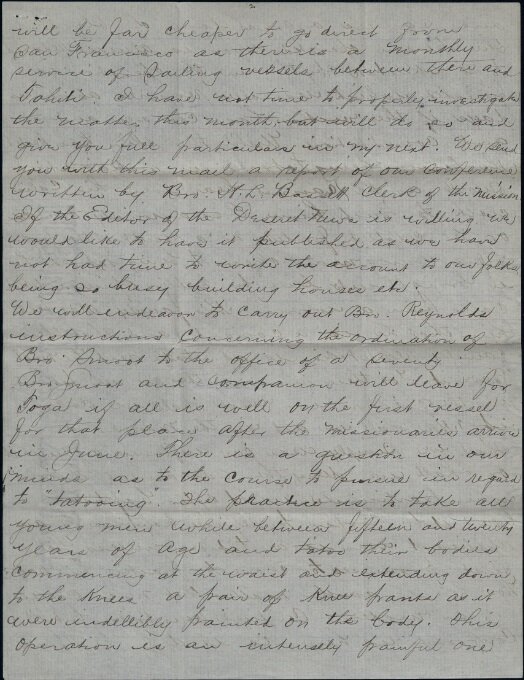 will be far cheaper to go direct from
San Francisco as there is a monthly
service of Sailing vessels between there and
Tahiti. I have not time to properly investigate
the matter this month but will do so and
give you full particulars in my next. We send
you with this mail a report of our Conference
written by Bro. A. L. Barrett Clerk of the mission
If the Editor of the Deseret News is willing we
would like to have it published as we have
not had time to write the account to our folks
being so busy building houses etc.
We will endeavor to carry out Bro. Reynolds
instructions concerning the ordination of
Bro. Smoot to the office of a seventy.
Bro Smoot and companion will leave for
Toga if all is well on the first vessel
for that place after the missionaries arrive
in June. There is a question in our
minds as to the course to pursue in regard
to "tatooing". The practice is to take all
young men while between fifteen and twenty
years of age and tatoo their bodies
commencing at the waist and extending down
to the knees a pair of knee pants as it
were indellibly painted on the body. This
operation is an intensely painful one